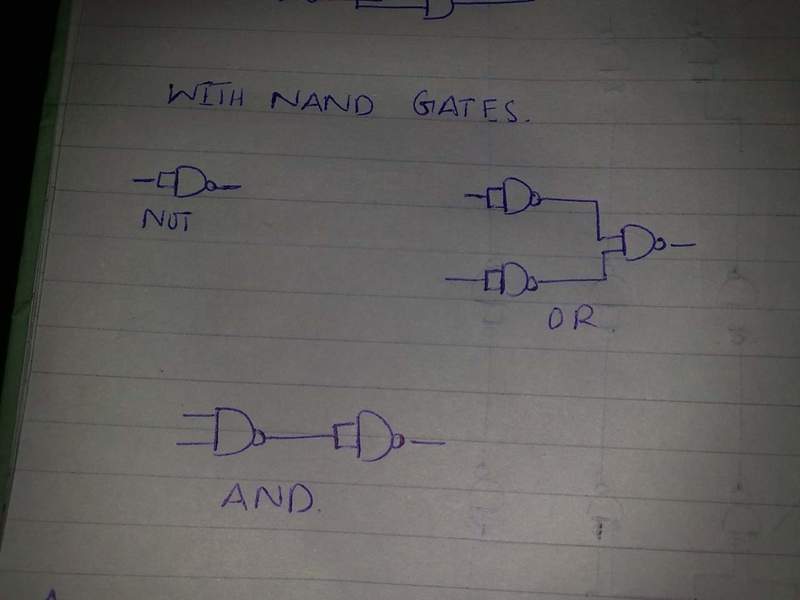 WITH NAND GATES.
NOT
OR.
AND.